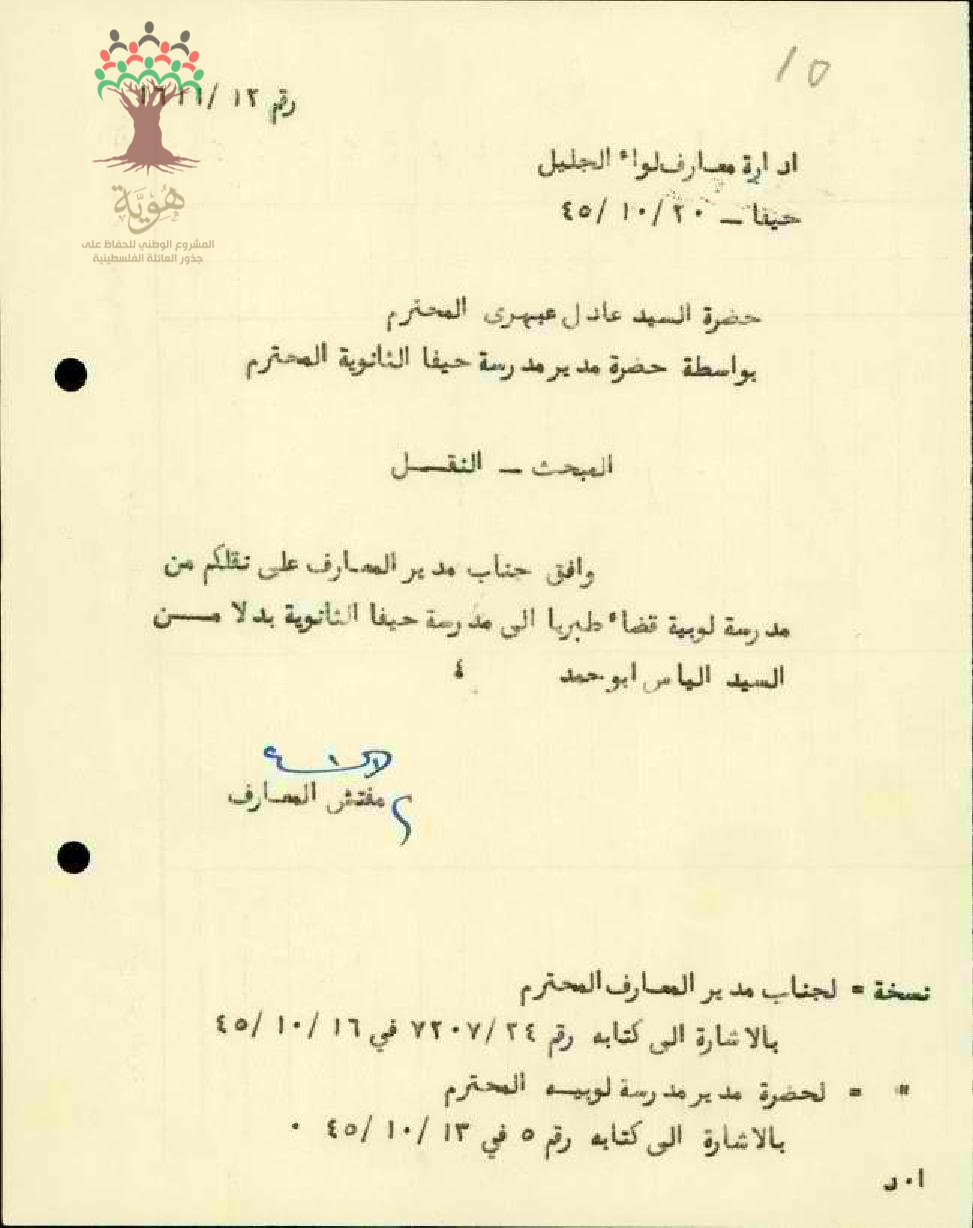 10
رقم ١٢ /١٦١١
ادارة معارف لواء الجليل
حيفا ـ ٢٠ /١٠ /٤٥
هُوِيَّة
المشروع الوطني للحفاظ على
جذور العائلة الفلسطينية
حضرة السيد عادل عبهرى المحترم
بواسطة حضرة مدير مدرسة حيفا الثانوية المحترم
المبحث ـ النقـــل
وافق جناب مدير المعارف على نقلكم من
مدرسة لوبية قضاء طبريا الى مدرسة حيفا الثانوية بدلا مـــن
السيد الياس ابو حمد
مفتش المعارف
نسخة = لجناب مدير المعارف المحترم
بالاشارة الى كتابه رقم ٢٤ /٧٢٠٧ في ١٦ /١٠ /٤٥
" = لحضرة مدير مدرسة لوبيــه المحترم
بالاشارة الى كتابه رقم ٥ في ١٣ /١٠ /٤٥ ٠
ا٠د